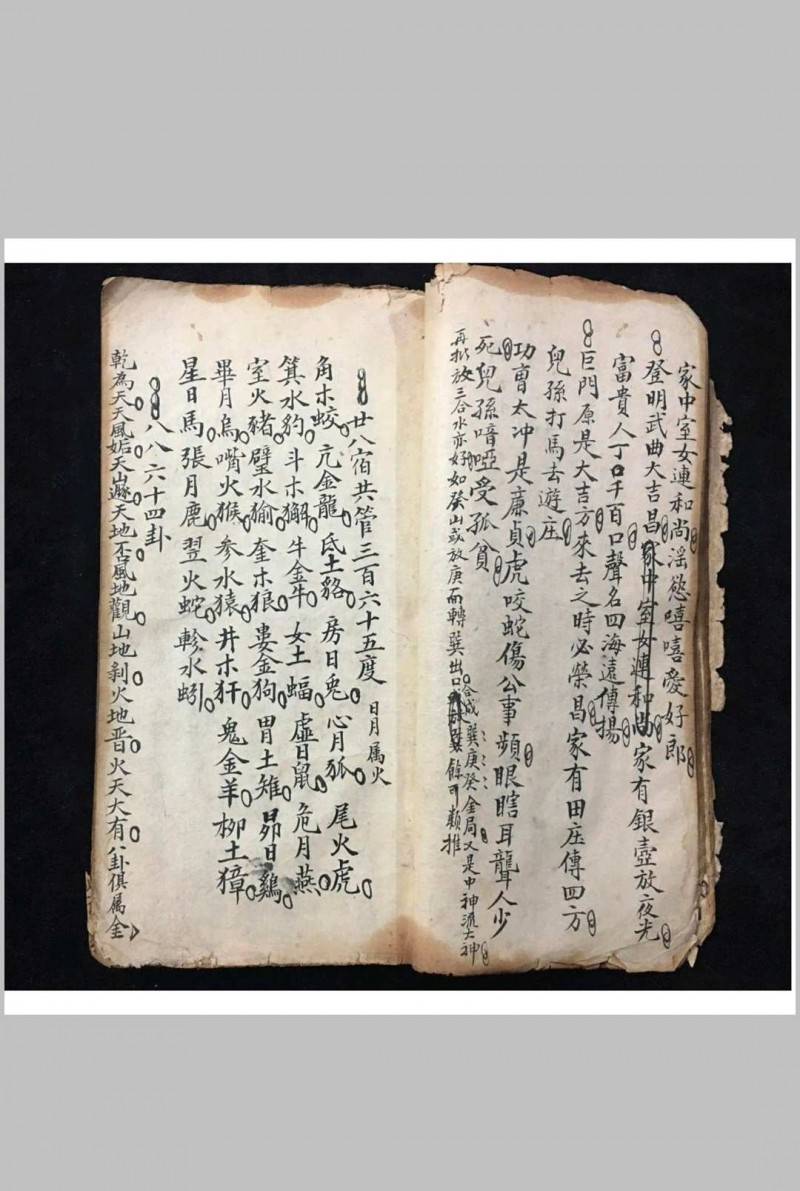 家中室女連和尚淫慾嘻嘻愛好郎
登明武曲大吉昌家中室女連和尚家有銀壺放夜光
富貴人丁口千百口聲名四海遠傳揚
巨門原是大吉方來去之時必榮昌家有田庄傳四方
兒孫打馬去遊庄
功曺太冲是廉貞虎咬蛇傷公事頻眼瞎耳聾人少
死兒孫喑啞受孤貧
再批放三合水亦好如癸山或放庚而轉巽出口合成巽庚癸金局又是中神流大神
餘可類推
廿八宿共管三百六十五度日月属火
角木蛟亢金龍氐土貉房日兎心月狐尾火虎
箕水豹斗木獬牛金牛女土蝠虛日鼠危月燕
室火豬壁水㺄奎木狼婁金狗胃土雉昴日鷄
畢月烏嘴火猴参水猿井木犴鬼金羊柳土獐
星日馬張月鹿翌火蛇軫水蚓
八八六十四卦
乾為天天風姤天山遯天地否風地觀山地剥火地晋火天大有八卦俱属金